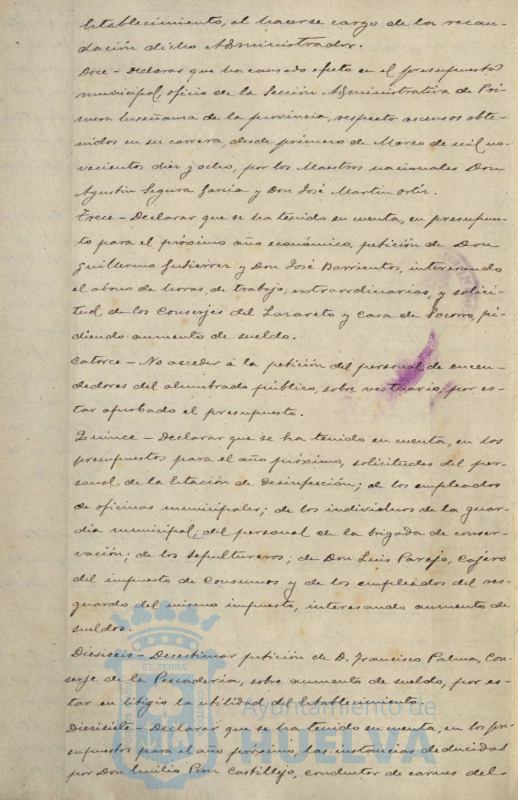 Establecimiento, al hacerse cargo de la recau-
dación dicho Administrador.
Doce - Declarar que ha causado efecto en el presupuesto
municipal, oficio de la Sección Administrativa de Pri-
mera Enseñanza de la provincia, respecto ascensos obte-
nidos en su carrera, desde primero de Marzo de mil no-
vecientos diez y ocho, por los Maestros nacionales Don
Agustin Segura Garcia y Don José Martin Ortiz.
Trece - Declarar que se ha tenido en cuenta, en presupues-
to para el próximo año económico, petición de Don
Guillermo Gutiérrez y Don José Barrientos, interesando
el abono de horas, de trabajo, extraordinarias, y solici-
tud, de los Conserjes del Lazareto y Casa de Socorro, pi-
diendo aumento de sueldo.
Catorce - No acceder á la petición del personal de encen-
dedores del alumbrado público, sobre vestuario, por es-
tar aprobado el presupuesto.
Quince - Declarar que se ha tenido en cuenta, en los
presupuestos para el año próximo, solicitudes del per-
sonal de la Estación de desinfección; de los empleados
de oficinas municipales; de los individuos de la guar-
dia municipal; del personal de la brigada de conser-
vación; de los sepultureros; de Don Luis Parejo, Cajero
del impuesto de Consumos y de los empleados del res-
guardo del mismo impuesto, interesando aumento de
sueldos.
Dieziseis - Desestimar petición de D. Francisco Palma, Con-
serje de la Pescaderia, sobre aumento de sueldo, por es-
tar en litigio la utilidad del Establecimiento.
Diezisiete - Declarar que se ha tenido en cuenta, en los pre-
supuestos para el año próximo, las instancias deducidas
por Don Emilio Pern Castillejo, conductor de carnes del
ET TERRÆ
Ayuntamiento de
HUELVA